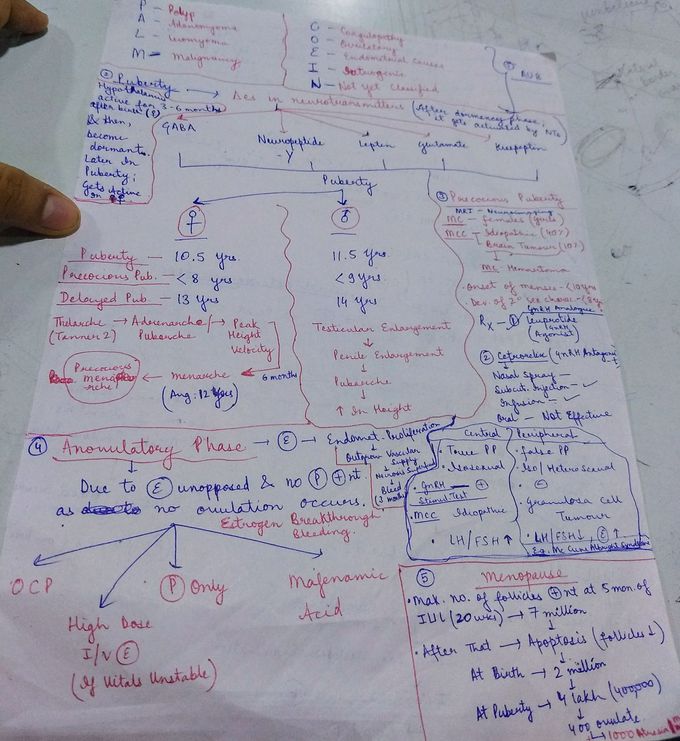 P - Polyp
A - Adenomyoma
L - Leiomyoma
M - Malignancy
C - Coagulopathy
O - Ovulatory
E - Endometrial Causes
I - Iatrogenic
N - Not yet classified
① AUB
② Puberty
Hypothalamus
active for 3-6 months
after birth
& then,
become
dormant.
Later In
Puberty;
Gets Active
→ Δes in neurotransmitters (After dormancy phase,
it gets activated by NTs)
GABA
Neuropeptide
Y
Leptin
Glutamate
Kisspeptin
Puberty
♀
♂
Puberty — 10.5 yrs.
11.5 yrs.
Precocious Pub. — < 8 yrs
< 9 yrs.
Delayed Pub — 13 yrs
14 yrs.
Thelarche → Adrenarche/ → Peak
(Tanner 2) Pubarche Height
Velocity
6 months
Precocious
menar-
che
← menarche
(Avg. 12 yrs)
Testicular Enlargement
↓
Penile Enlargement
↓
Pubarche
↓
↑ In Height
③ Precocious Puberty
MRI - Neuroimaging
MC - females (girls)
MCC - Idiopathic (40%)
Brain Tumour (10%)
↓
MC - Hamartoma
• Onset of menses - < 10 yrs
• Dev. of 2° sex charac -
GnRH Analogue
Rx - ① Leuprolide
(GnRH
Agonist)
② Cetrorelix (GnRH Antagonist
Nasal Spray -
Subcut. Injection - ✓
Infusion - ✓
Oral - Not Effective
Central
• True PP
• Isosexual
• GnRH — ⊕
Stimul Test
• MCC Idiopathic
• LH/FSH ↑
Peripheral
• False PP
• Iso/Hetero Sexual
• ⊖
• Granulosa Cell
Tumour
• LH/FSH ↓, Ⓔ ↑
E.g. Mc Cune Albright Syndrome
④ Anovulatory Phase → Ⓔ → Endomet. Proliferation
↓
Outgrow Vascular
Supply
↓
Necrosis
↓
Bleed
↓
Due to Ⓔ unopposed & no Ⓟ ⊕nt
as no ovulation occurs.
Estrogen Breakthrough
Bleeding.
OCP
High Dose
I/V Ⓔ
(If Vitals Unstable)
Ⓟ Only
Mefenamic
Acid
⑤ Menopause
• Max. no. of follicles ⊕nt at 5 mon. of
IUL (20 wks) → 7 million
↓
• After That → Apoptosis (follicles ↓)
↓
At Birth → 2 million
↓
At Puberty → 4 lakh (400,000)
↓
400 ovulate.